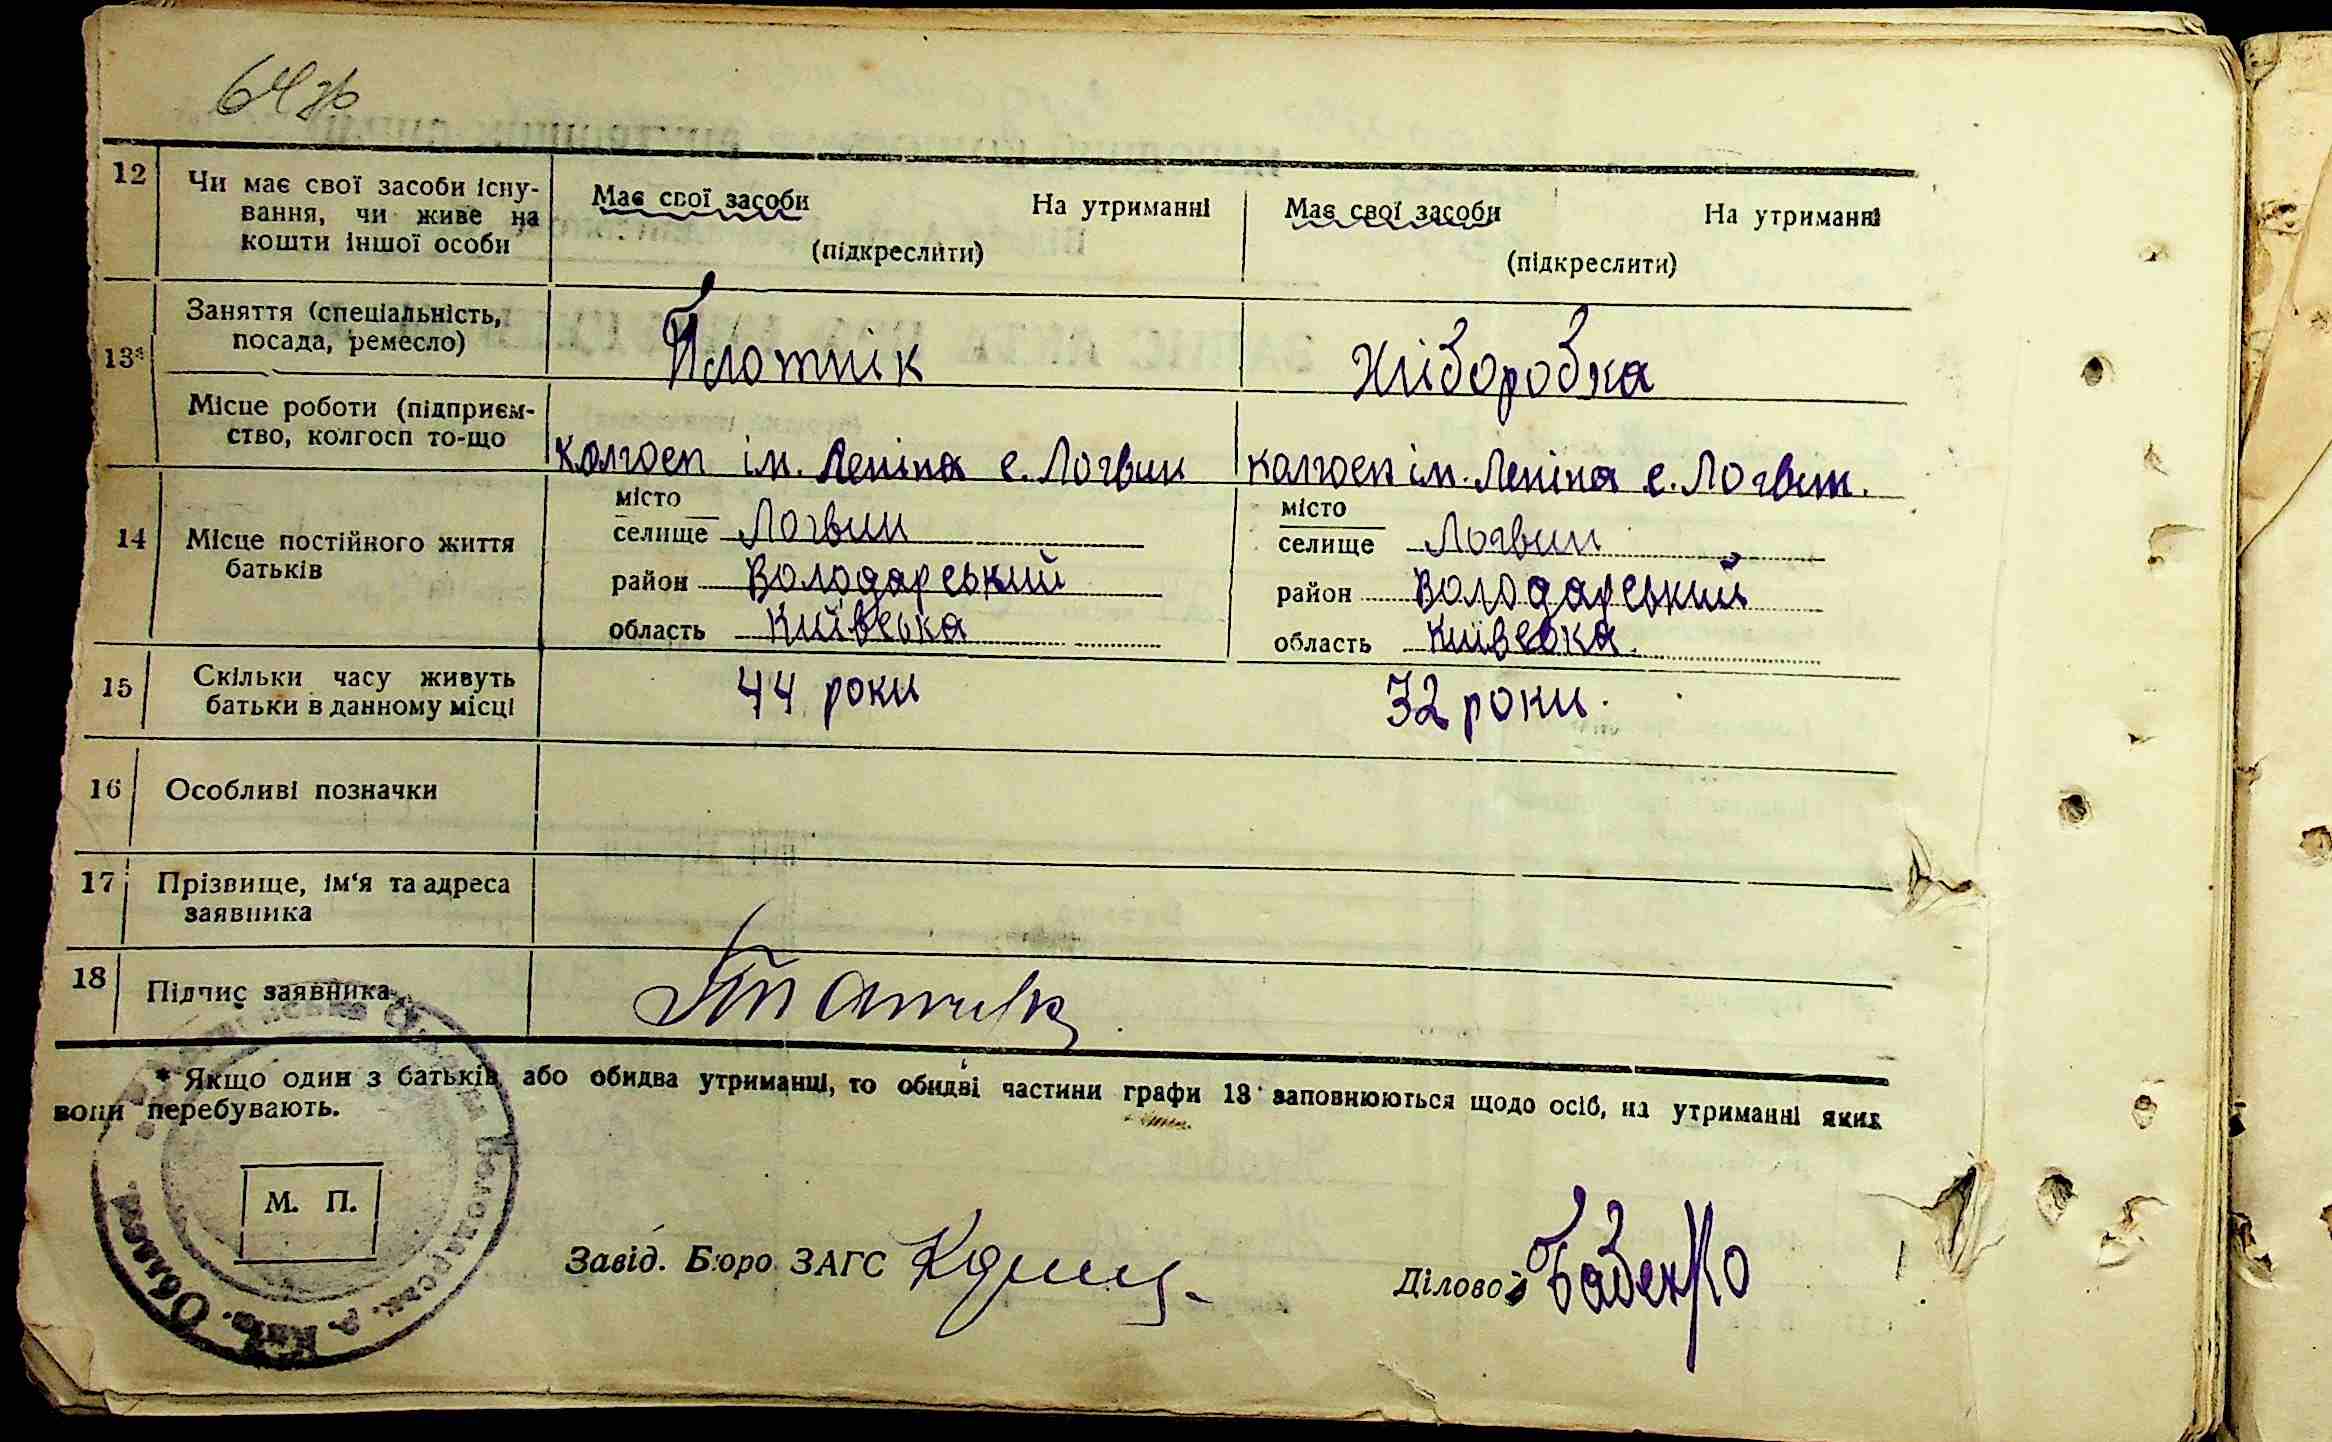 64 зв
12 Чи має свої засоби існу-
вання, чи живе на
кошти іншої особи
Має свої засоби На утриманні
(підкреслити)
Має свої засоби На утриманні
(підкреслити)
13* Заняття (спеціальність,
посада, ремесло)
Плотнік
Хліборобка
Місце роботи (підприєм-
ство, колгосп то-що
колгосп ім. Леніна с. Логвин
колгосп ім. Леніна с. Логвин.
14 Місце постійного життя
батьків
місто
селище Логвин
район Володарський
область Київська
місто
селище Логвин
район Володарський
область Київська.
15 Скільки часу живуть
батьки в данному місці
44 роки
32 роки.
16 Особливі позначки
17 Прізвище, ім'я та адреса
заявника
18 Підпис заявника
* Якщо один з батьків або обидва утриманці, то обидві частини графи 13 заповнюються щодо осіб, на утриманні яких
вони перебувають.
М. П.
Володарськ. р. Київ. Област.
Завід. Бюро ЗАГС
Діловод Бабенко